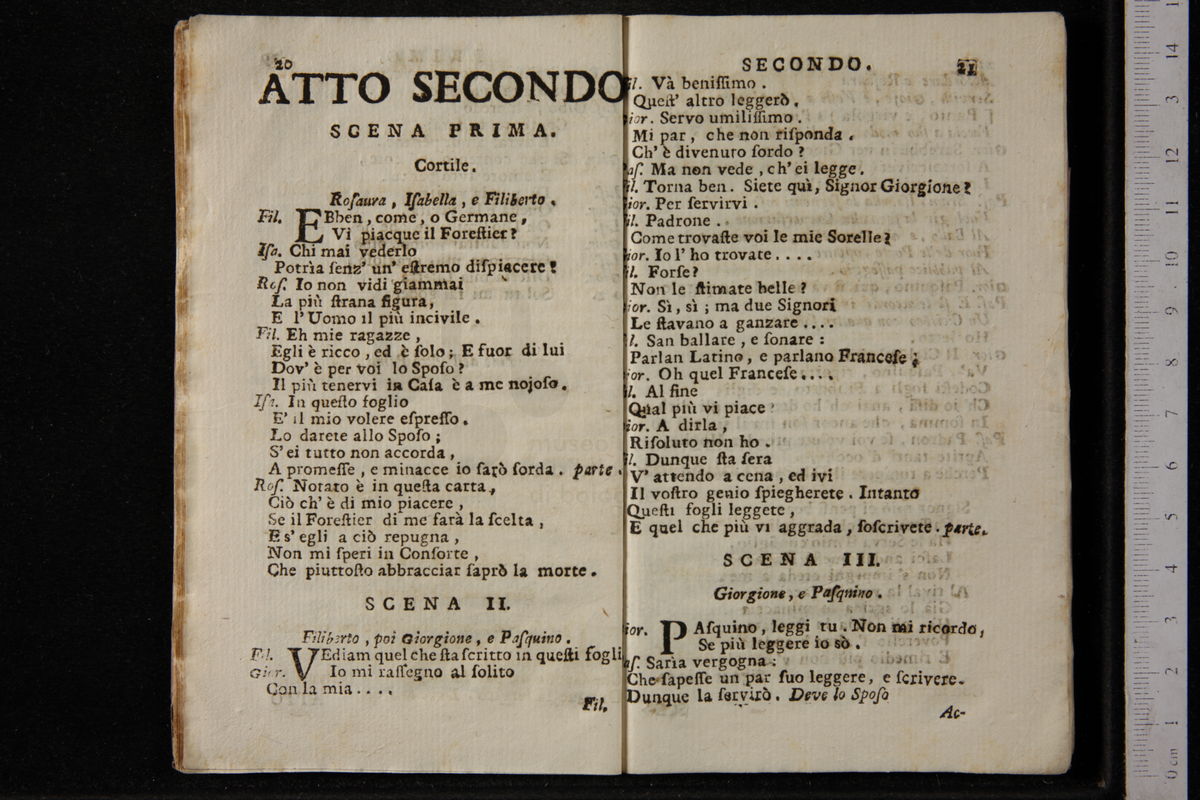 20
ATTO SECONDO
SCENA PRIMA.
Cortile.
Roſaura, Iſabella, e Filiberto.
Fil. EBben, come, o Germane,
Vi piacque il Foreſtier?
Iſa. Chi mai vederlo
Potrìa ſenz' un' eſtremo diſpiacere!
Roſ. Io non vidi giammai
La più ſtrana figura,
E l'Uomo il più incivile.
Fil. Eh mie ragazze,
Egli è ricco, ed è ſolo; E fuor di lui
Dov' è per voi lo Spoſo?
Il più tenervi in Caſa è a me nojoſo.
Iſa. In queſto foglio
E' il mio volere eſpreſſo.
Lo darete allo Spoſo;
S'ei tutto non accorda,
A promeſſe, e minacce io ſarò ſorda. parte.
Roſ. Notato è in queſta carta,
Ciò ch' è di mio piacere,
Se il Foreſtier di me farà la ſcelta,
E s' egli a ciò repugna,
Non mi ſperi in Conſorte,
Che piuttoſto abbracciar ſaprò la morte.
SCENA II.
Filiberto, poi Giorgione, e Paſquino.
Fil. VEdiam quel che ſta ſcritto in queſti fogli
Gior. Io mi raſſegno al ſolito
Con la mia....
Fil.
SECONDO. 21
il. Và beniſſimo.
Queſt' altro leggerò.
ior. Servo umiliſſimo.
Mi par, che non riſponda.
Ch' è divenuto ſordo?
aſ. Ma non vede, ch' ei legge.
il. Torna ben. Siete quì, Signor Giorgione?
ior. Per ſervirvi.
il. Padrone.
Come trovaſte voi le mie Sorelle?
ior. Io l' ho trovate....
il. Forſe?
Non le ſtimate belle?
ior. Sì, sì; ma due Signori
Le ſtavano a ganzare....
l. San ballare, e ſonare:
Parlan Latino, e parlano Franceſe;
ior. Oh quel Franceſe....
il. Al fine
Qual più vi piace?
ior. A dirla,
Riſoluto non ho.
il. Dunque ſta ſera
V' attendo a cena, ed ivi
Il voſtro genio ſpiegherete. Intanto
Queſti fogli leggete,
E quel che più vi aggrada, ſoſcrivete. parte.
SCENA III.
Giorgione, e Paſquino.
ior. PAſquino, leggi tu. Non mi ricordo,
Se più leggere io sò.
aſ. Sarìa vergogna:
Che ſapeſſe un par ſuo leggere, e ſcrivere.
Dunque la ſervirò. Deve lo Spoſo
Ac-
0 cm 1 2 3 4 5 6 7 8 9 10 11 12 3 14